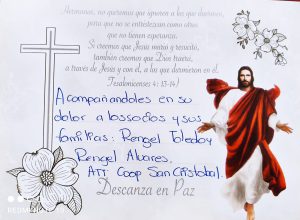 Hermanos, no queremos que ignoren a los que duermen,
para que no se entristezcan como otros
que no tienen esperanza.
Si creemos que Jesús murió y resucitó,
también creemos que Dios traerá,
a través de Jesús y con él, a los que durmieron en él.
Tesalonicenses 4: 13-14!
Acompañandoles en su
dolor a los socios y sus
familias: Rengel Toledo y
Rengel Alvares,
Att Coop San Cristobal.
Descanza en Paz
REDMI